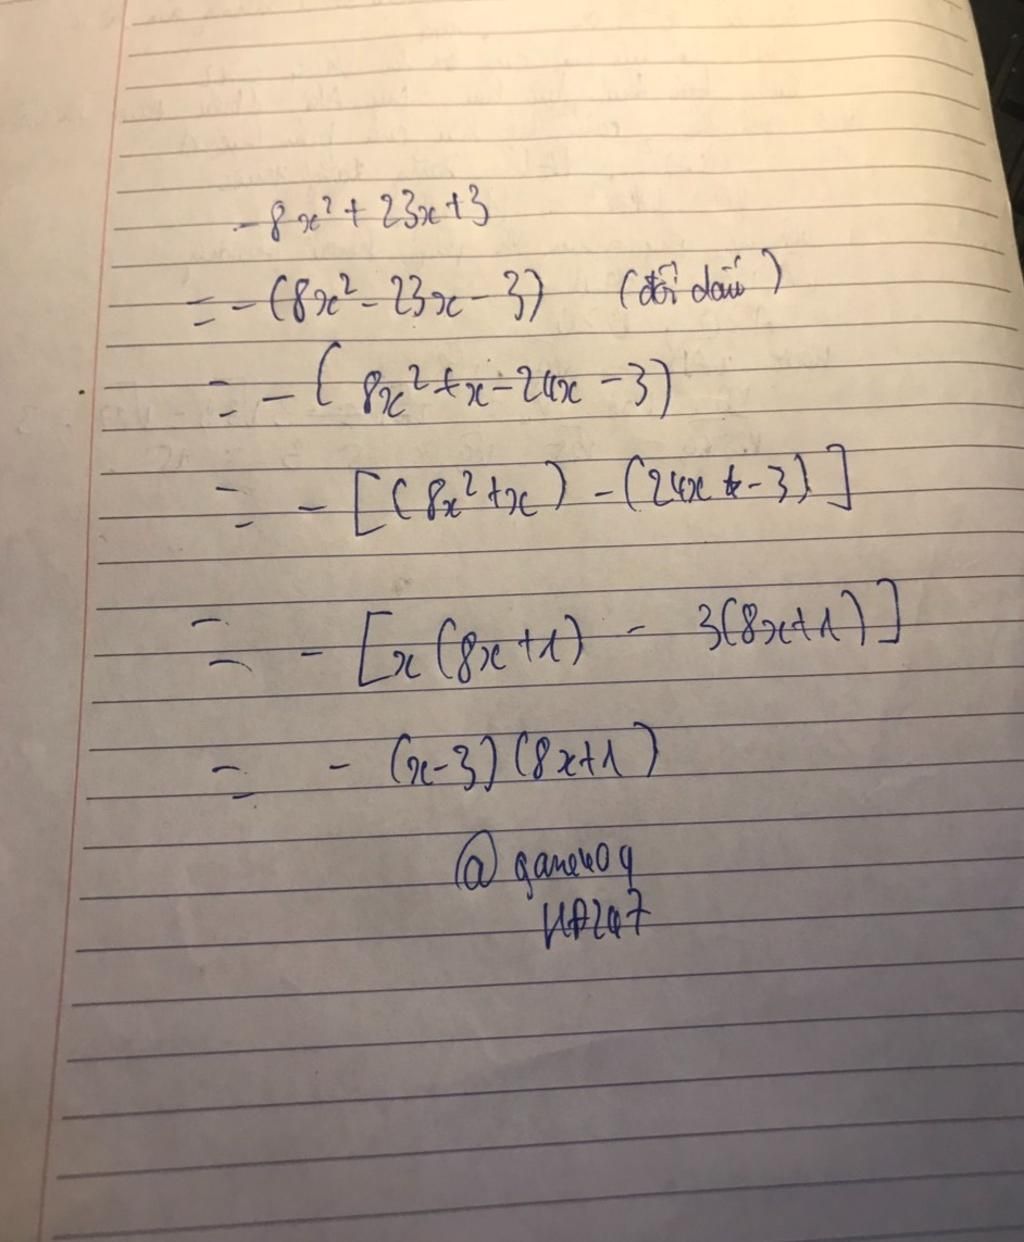 -8x² + 23x + 3
= -(8x² - 23x - 3) (đổi dấu)
= - (8x² + x - 24x - 3)
= - [(8x² + x) - (24x - 3)]
= - [x(8x + 1) - 3(8x + 1)]
= - (x - 3)(8x + 1)